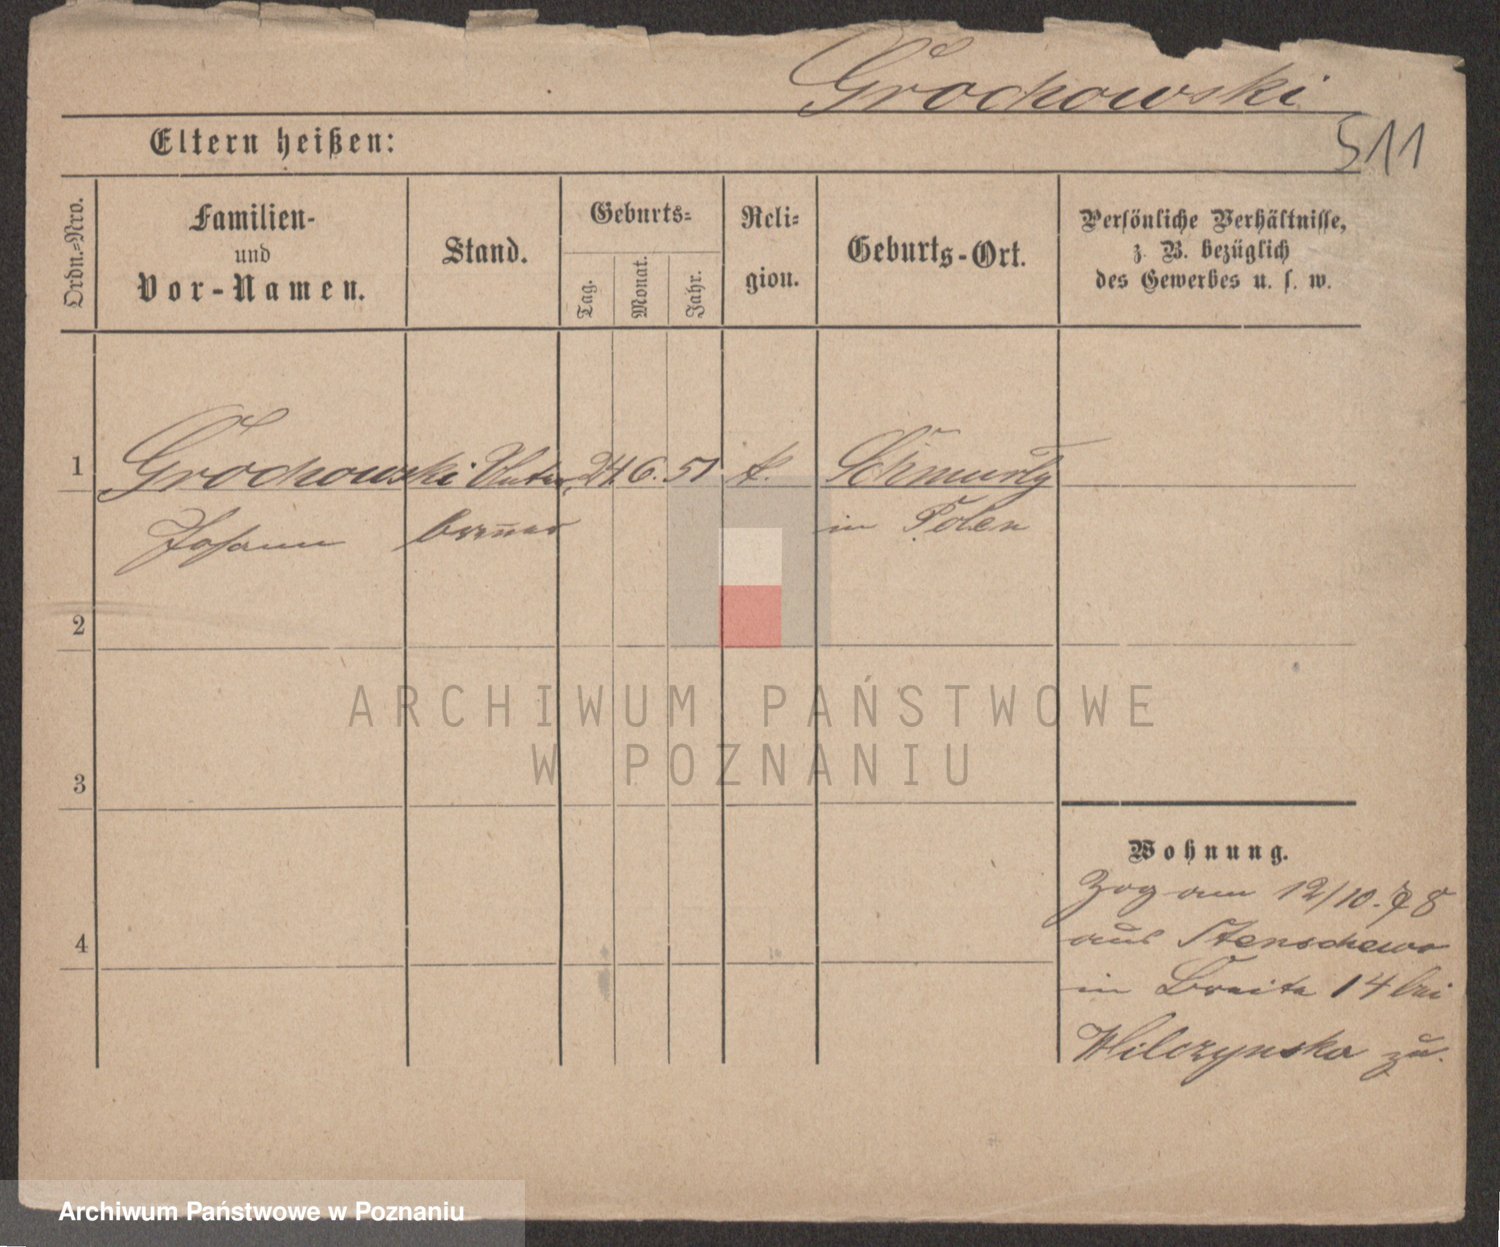 Grochowski
511
Eltern heißen:
Ordn.=Nro.
Familien-
und
Vor-Namen.
Stand.
Geburts=
Tag.
Monat.
Jahr.
Reli=
gion.
Geburts-Ort.
Persönliche Verhältnisse,
z. B. bezüglich
des Gewerbes u. s. w.
1
Grochowski
24. 6. 51
k.
Johann
in Polen
2
ARCHIWUM PAŃSTWOWE
W POZNANIU
3
Wohnung.
Zog am 12/10. 78
4
aus Stenschewo
in Breite 14 bei
Wilczynska zu.
Archiwum Państwowe w Poznaniu